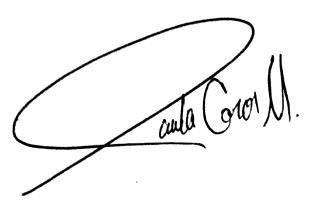 Paula Coror M.